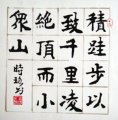 積跬步以
致千里凌
絶頂而小
衆山